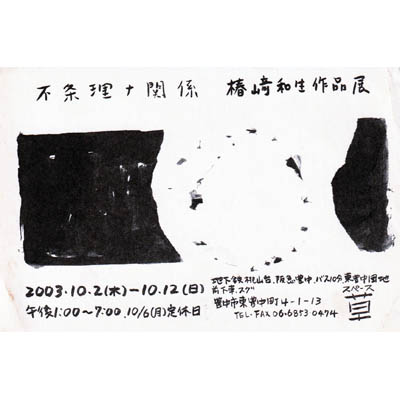 不条理ナ関係 椿﨑和生作品展
2003.10.2(木)-10.12(日)
午後1:00~7:00.10/6(月)定休日
地下鉄桃山台、阪急豊中、バス10分東豊中団地
前下車、スグ
豊中市東豊中町4-1-13
TEL・FAX 06-6853 0474
スペース
草